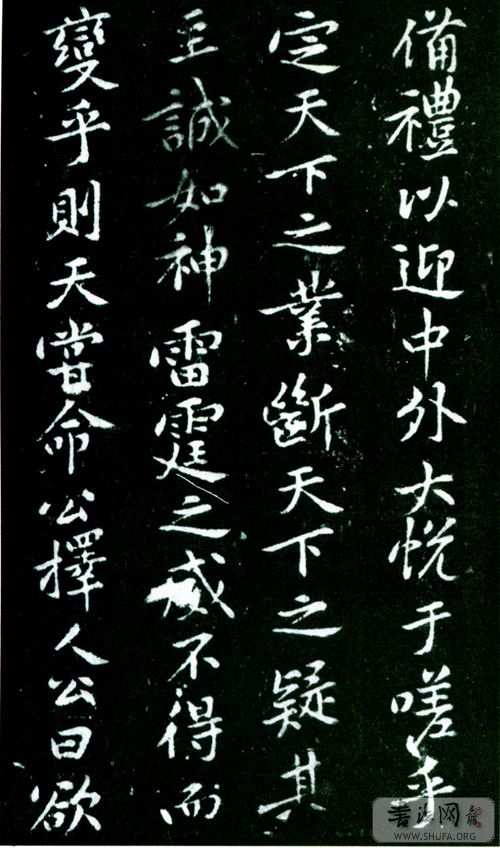 備禮以迎中外大悅于嗟乎
定天下之業斷天下之疑其
至誠如神雷霆之威不得而
變乎則天嘗命公擇人公曰欲
书法网
WWW.SHUFA.ORG